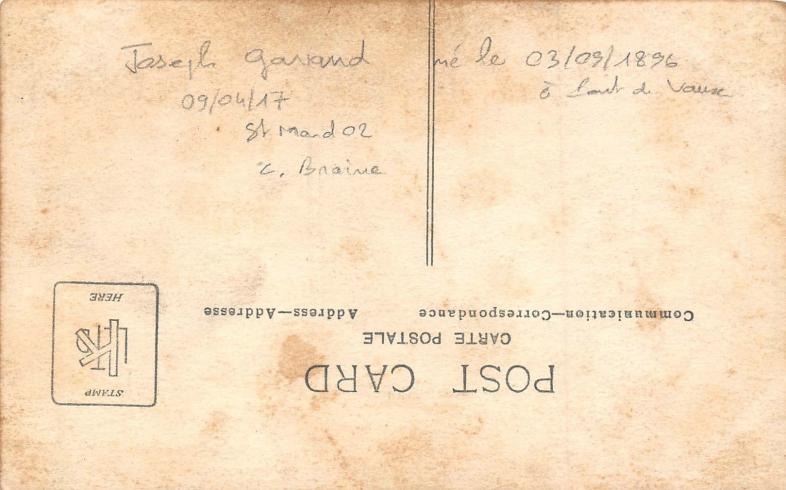 Joseph Gavand né le 03/09/1896
à Pont de Vaux
09/04/17
St Mard 02
c. Braine
Communication—Correspondance
Address—Addresse
CARTE POSTALE
POST CARD
STAMP
HERE